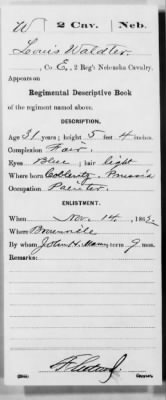 W | 2 Cav. | Neb.
Louis Waldter
, Co. E, 2 Reg't Nebraska Cavalry.
Appears on
Regimental Descriptive Book
of the regiment named above.
DESCRIPTION.
Age 31 years; height 5 feet 4 inches.
Complexion Fair
Eyes Blue; hair light
Where born Coblentz, Prussia
Occupation Painter
ENLISTMENT.
When Nov. 14, 186
Where Brownville
By whom John H. Mann; term 9 mos.
Remarks:
Copyist.